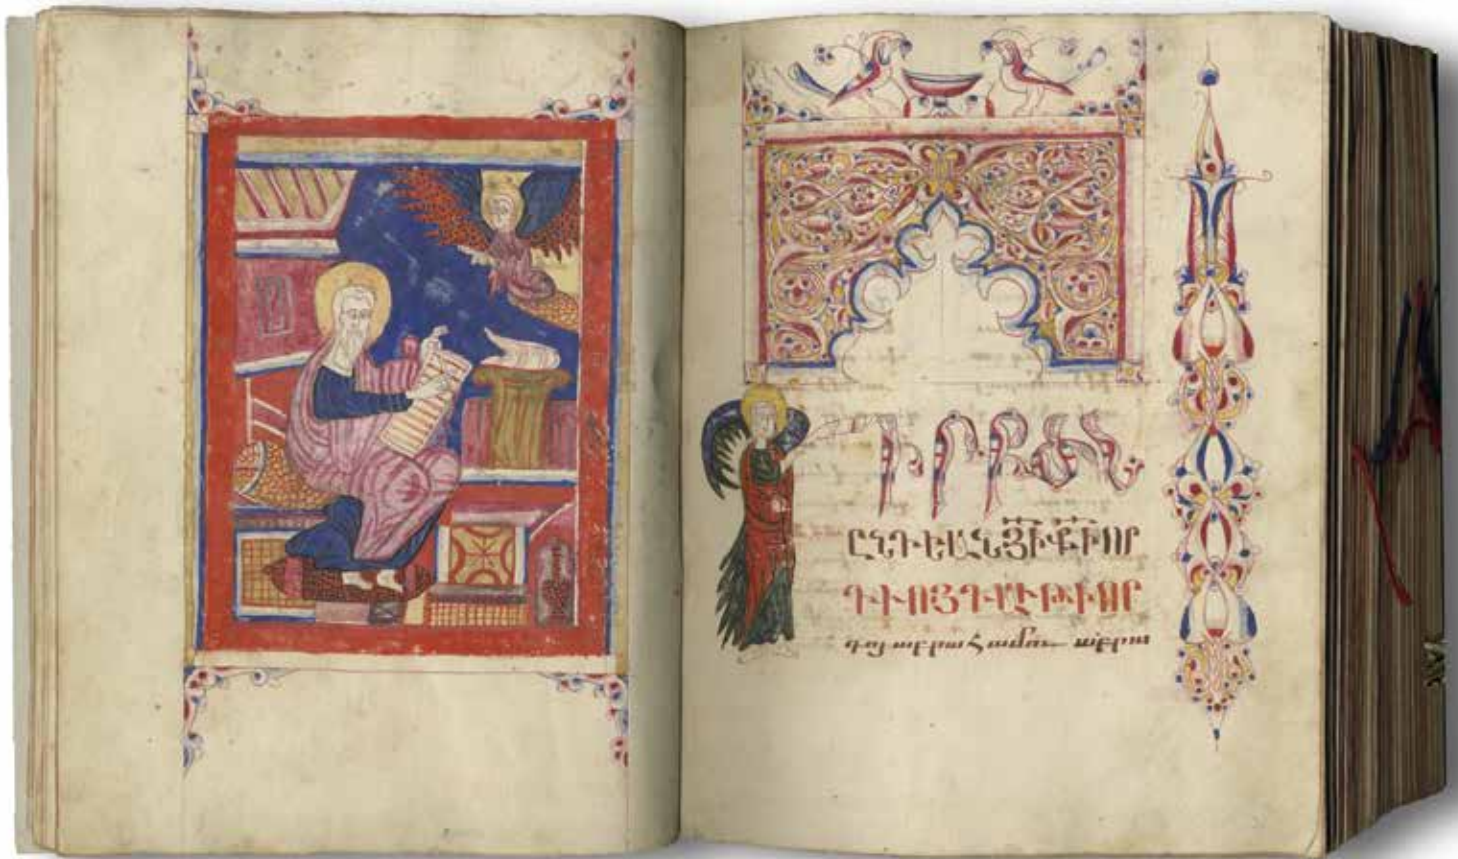 ԳԻՐՔԾՆ
ԸՆԴԵԱՆՅԻՔԻՈՐ
ԴԻՈՅԴԱՒԹԻՈՐ
դոյ աբրահամու աբրա